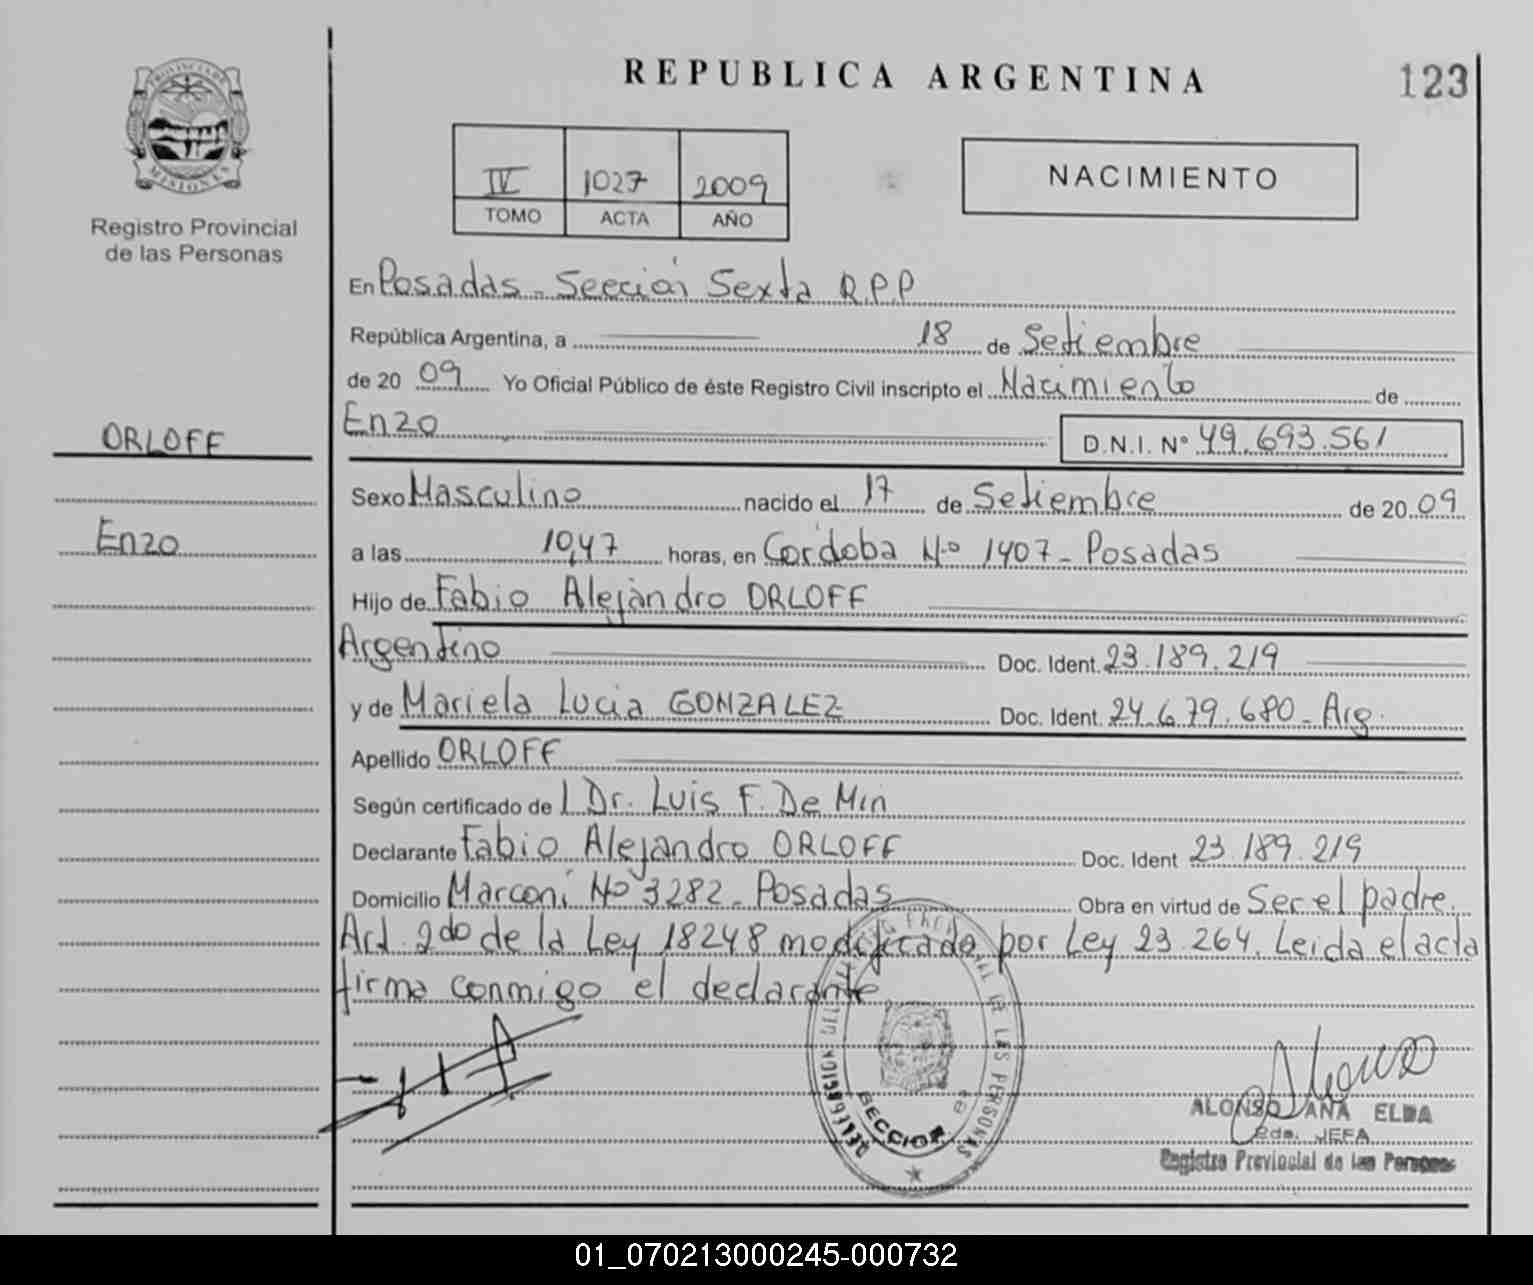 REPUBLICA ARGENTINA
123
PROVINCIA DE
MISIONES
Registro Provincial
de las Personas
IV 1027 2009
TOMO ACTA AÑO
NACIMIENTO
En Posadas - Sección Sexta R.P.P
República Argentina, a 18 de Setiembre
de 20 09 Yo Oficial Público de éste Registro Civil inscripto el Nacimiento de
Enzo D.N.I. Nº 49.693.561
ORLOFF
Enzo
Sexo Masculino nacido el 17 de Setiembre de 20 09
a las 10,47 horas, en Cordoba Nº 1407 - Posadas
Hijo de Fabio Alejandro ORLOFF
Argentino Doc. Ident. 23.189.219
y de Mariela Lucia GONZALEZ Doc. Ident. 24.679.680 - Arg.
Apellido ORLOFF
Según certificado de l Dr. Luis F. De Miri
Declarante Fabio Alejandro ORLOFF Doc. Ident 23.189.219
Domicilio Marconi Nº 3282 - Posadas Obra en virtud de Ser el padre.
Art. 2do de la Ley 18248 modificado por Ley 23.264. Leida el acta
firma conmigo el declarante
SECCION
ALONSO ANA ELDA
2da. JEFA
Registro Provincial de las Personas
01_070213000245-000732